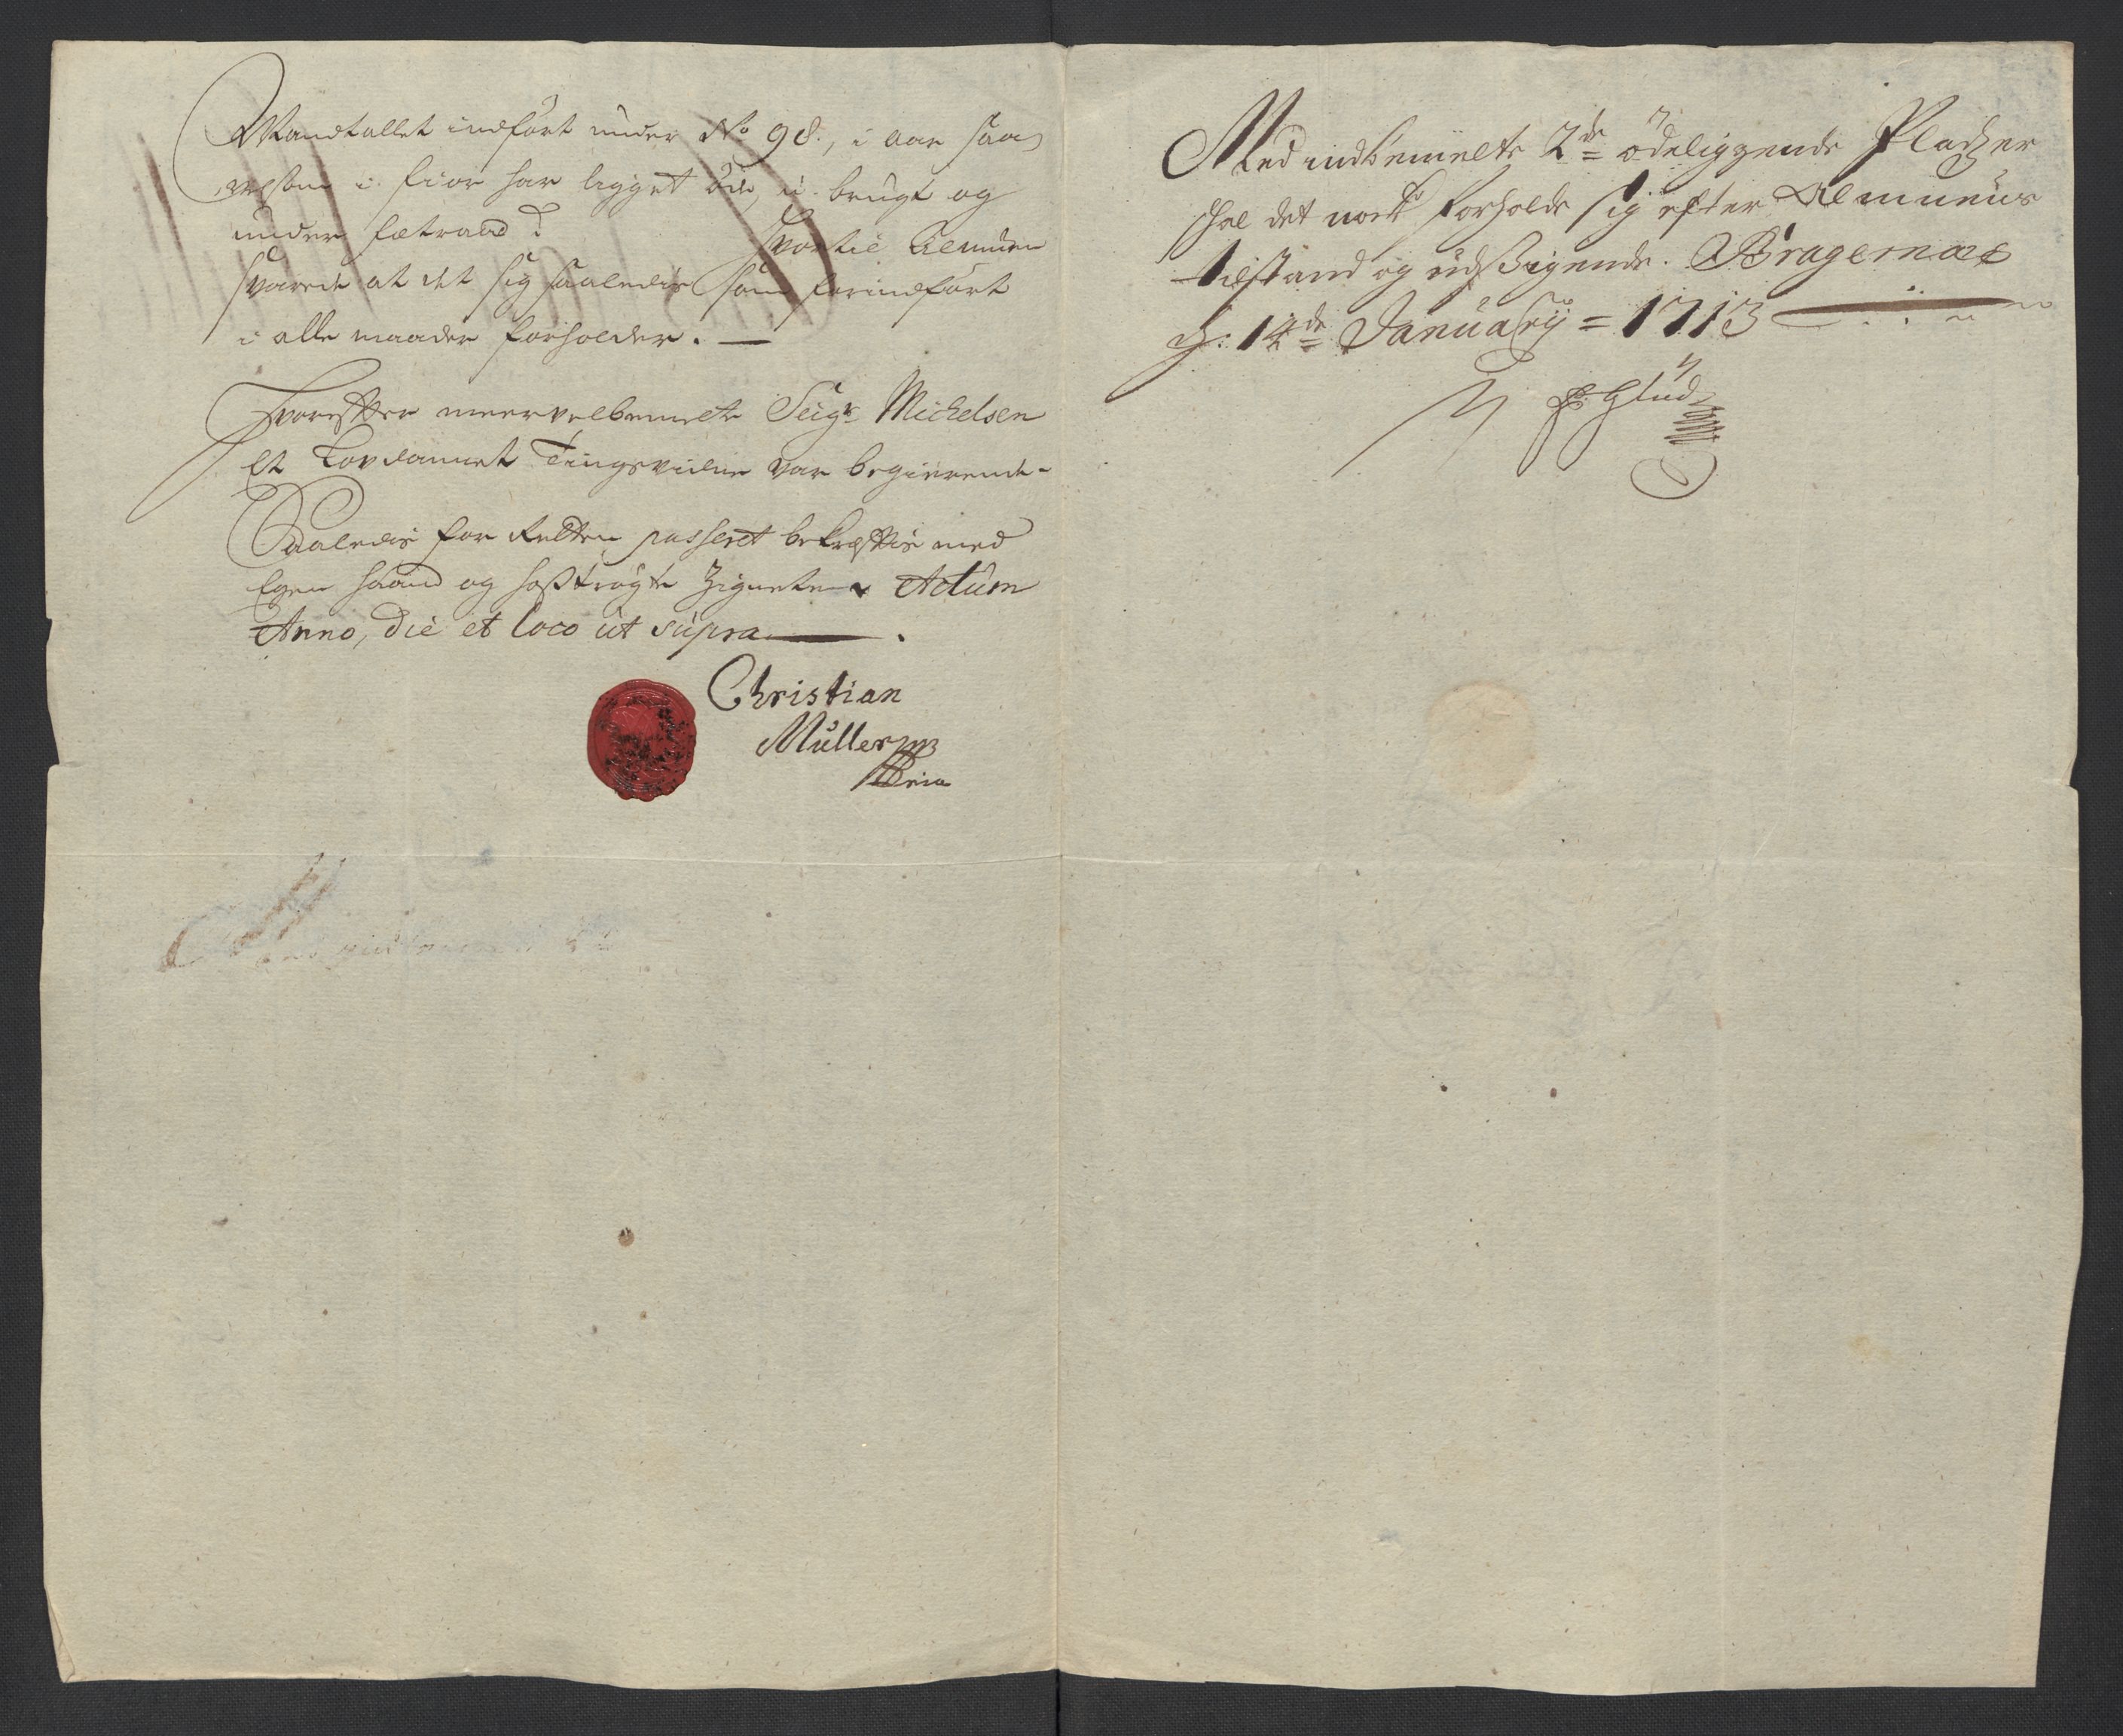 Mandtallet indført under No 98., i aar saa
velsom i fior har ligget Øde, u-brugt og
under fætraad? Hvortil Almuen
svarede at det sig saaledis som forindført
i alle maader forholder. —
Hvorefter meervelbemelte Seigr Michelsen
Et Lovdannet Tingsvidne var begierende-
Saaledis for Retten passeret bekræfftis med
Egen haand og hoströgte Zignete. Actum
Anno, die et loco ut supra — .
Christian
Müller mp
Med indbemelte 2de ødeliggende Pladzer
schal det noch forholde sig efter Almuens
tilstand og udsigende. Bragernæs
d: 14de January = 1713